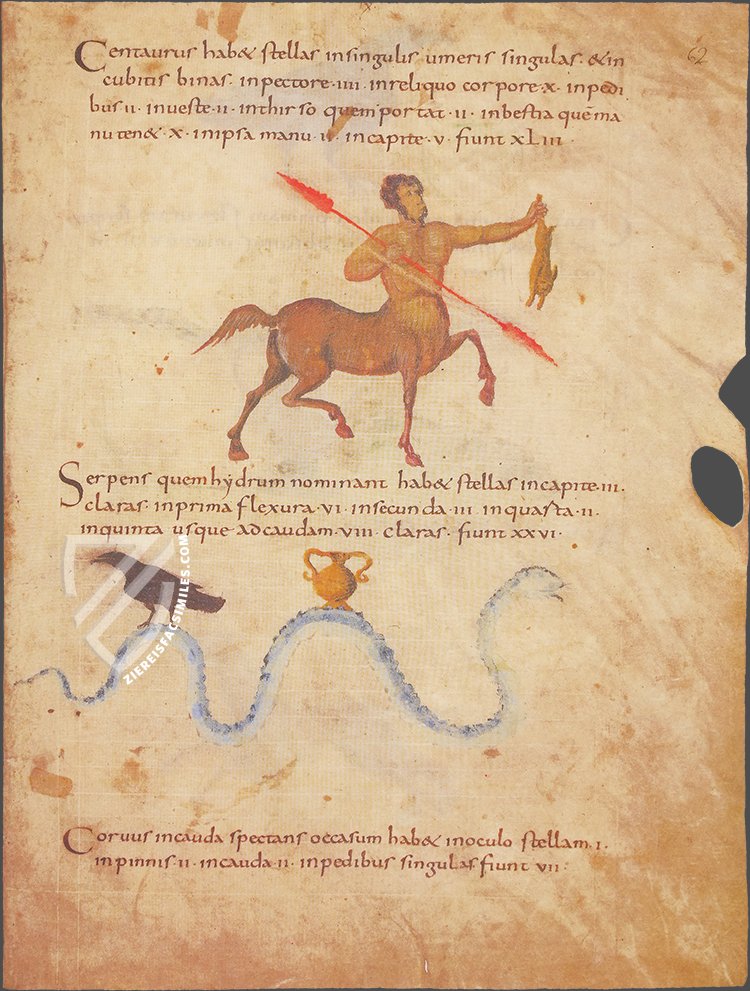 Centaurus hab& stellas insingulis umeris singulas · &in
cubitis binas · inpectore · iiii · inreliquo corpore · x · inpedi
bus · ii · inueste · ii · inthirso quem portat · ii · inbestia quēma
nu ten& · x · inipsa manu · ii · incapite · v · fiunt xLiii ·
62
Serpens quem hydrum nominant hab& stellas incapite · iii ·
claras · inprima flexura · vi · insecunda · iii · inquasta · ii ·
inquinta usque adcaudam · viii · claras · fiunt xxvi ·
ZIEREISFACSIMILES.COM
Coruus incauda spectans occasum hab& inoculo stellam · i ·
inpinnis · ii · incauda · ii · inpedibus singulas fiunt vii ·